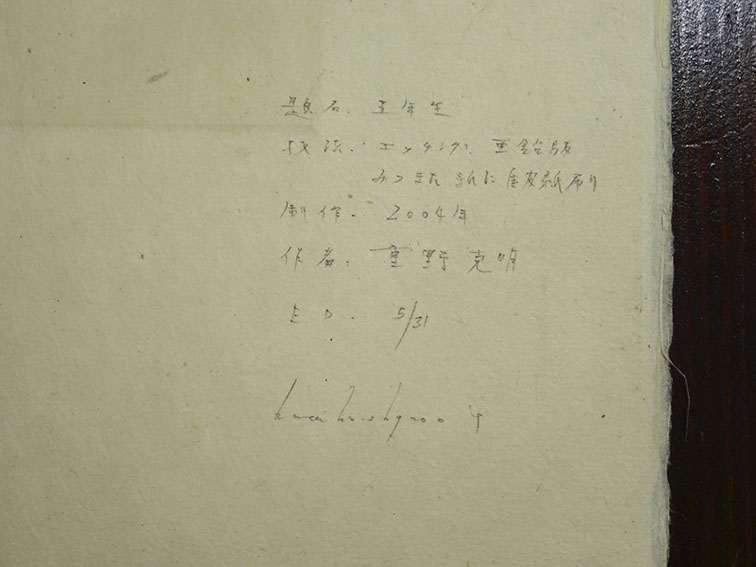 題名. 五年生
技法. エッチング. 亜鉛版
みつまた紙に雁皮紙刷り
制作. 2004年
作者. 重野克明
ED. 5/31